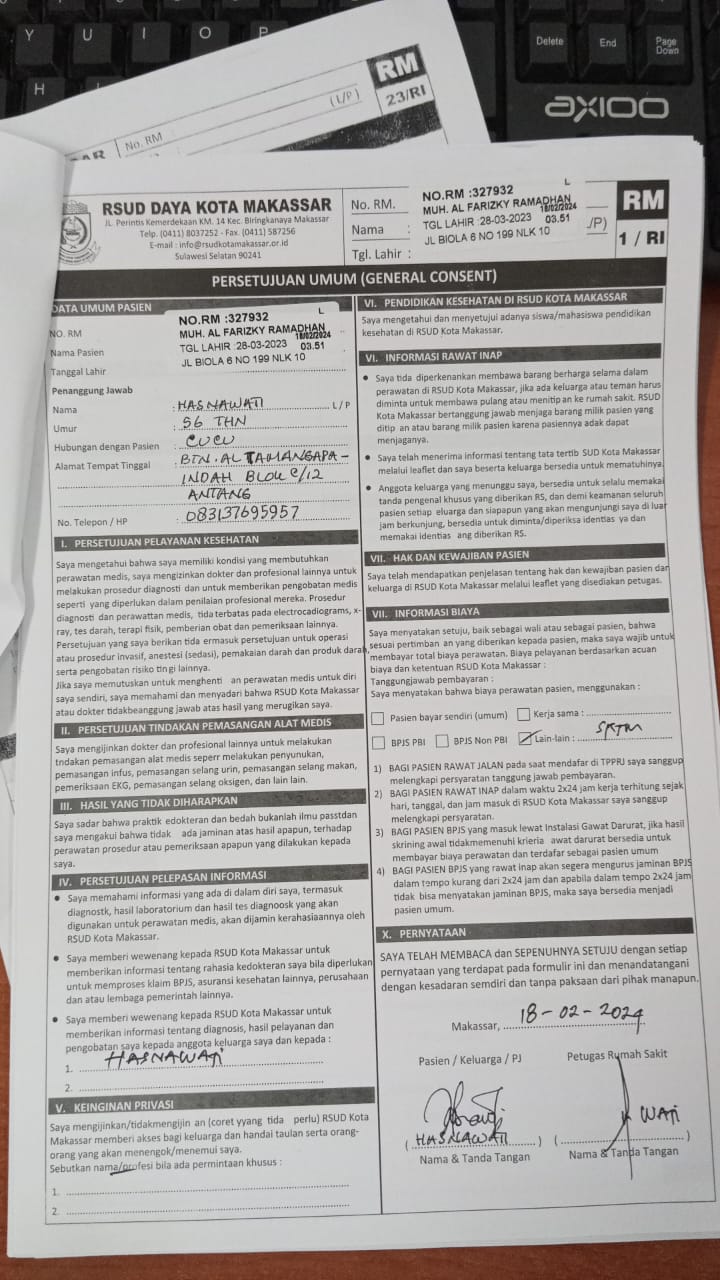 Y U I O P
H
Delete End Page Down
AXIOO
RM
23/RI
(L/P)
No. RM
RSUD DAYA KOTA MAKASSAR
JL. Perintis Kemerdekaan KM. 14 Kec. Biringkanaya Makassar
Telp. (0411) 8037252 - Fax. (0411) 587256
E-mail : info@rsudkotamakassar.or.id
Sulawesi Selatan 90241
No. RM.
Nama :
Tgl. Lahir :
L
NO.RM :327932
MUH. AL FARIZKY RAMADHAN
18/02/2024
TGL LAHIR :28-03-2023 03.51
JL BIOLA 6 NO 199 NLK 10
/P)
RM
1 / RI
PERSETUJUAN UMUM (GENERAL CONSENT)
DATA UMUM PASIEN
NO. RM
Nama Pasien
Tanggal Lahir
NO.RM :327932 L
MUH. AL FARIZKY RAMADHAN
18/02/2024
TGL LAHIR :28-03-2023 03.51
JL BIOLA 6 NO 199 NLK 10
Penanggung Jawab
Nama : HASNAWATI L / P
Umur : 56 THN
Hubungan dengan Pasien : CUCU
Alamat Tempat Tinggal : BTN. AL TAMANGAPA -
INDAH BLOK C/12
ANTANG
No. Telepon / HP : 083137695957
I. PERSETUJUAN PELAYANAN KESEHATAN
Saya mengetahui bahwa saya memiliki kondisi yang membutuhkan
perawatan medis, saya mengizinkan dokter dan profesional lainnya untuk
melakukan prosedur diagnosti dan untuk memberikan pengobatan medis
seperti yang diperlukan dalam penilaian profesional mereka. Prosedur
diagnosti dan perawattan medis, tida terbatas pada electrocadiograms, x-
ray, tes darah, terapi fisik, pemberian obat dan pemeriksaan lainnya.
Persetujuan yang saya berikan tida ermasuk persetujuan untuk operasi
atau prosedur invasif, anestesi (sedasi), pemakaian darah dan produk darah,
serta pengobatan risiko tingi lainnya.
Jika saya memutuskan untuk menghenti an perawatan medis untuk diri
saya sendiri, saya memahami dan menyadari bahwa RSUD Kota Makassar
atau dokter tidakbeanggung jawab atas hasil yang merugikan saya.
II. PERSETUJUAN TINDAKAN PEMASANGAN ALAT MEDIS
Saya mengijinkan dokter dan profesional lainnya untuk melakukan
tndakan pemasangan alat medis seperr melakukan penyunukan,
pemasangan infus, pemasangan selang urin, pemasangan selang makan,
pemeriksaan EKG, pemasangan selang oksigen, dan lain lain.
III. HASIL YANG TIDAK DIHARAPKAN
Saya sadar bahwa praktik edokteran dan bedah bukanlah ilmu passtdan
saya mengakui bahwa tidak ada jaminan atas hasil apapun, terhadap
perawatan prosedur atau pemeriksaan apapun yang dilakukan kepada
saya.
IV. PERSETUJUAN PELEPASAN INFORMASI
• Saya memahami informasi yang ada di dalam diri saya, termasuk
diagnostk, hasil laboratorium dan hasil tes diagnoosk yang akan
digunakan untuk perawatan medis, akan dijamin kerahasiaannya oleh
RSUD Kota Makassar.
• Saya memberi wewenang kepada RSUD Kota Makassar untuk
memberikan informasi tentang rahasia kedokteran saya bila diperlukan
untuk memproses klaim BPJS, asuransi kesehatan lainnya, perusahaan
dan atau lembaga pemerintah lainnya.
• Saya memberi wewenang kepada RSUD Kota Makassar untuk
memberikan informasi tentang diagnosis, hasil pelayanan dan
pengobatan saya kepada anggota keluarga saya dan kepada :
1. HASNAWATI
2.
V. KEINGINAN PRIVASI
Saya mengijinkan/tidakmengijin an (coret yyang tida perlu) RSUD Kota
Makassar memberi akses bagi keluarga dan handai taulan serta orang-
orang yang akan menengok/menemui saya.
Sebutkan nama/profesi bila ada permintaan khusus :
1.
2.
VI. PENDIDIKAN KESEHATAN DI RSUD KOTA MAKASSAR
Saya mengetahui dan menyetujui adanya siswa/mahasiswa pendidikan
kesehatan di RSUD Kota Makassar.
VI. INFORMASI RAWAT INAP
• Saya tida diperkenankan membawa barang berharga selama dalam
perawatan di RSUD Kota Makassar, jika ada keluarga atau teman harus
diminta untuk membawa pulang atau menitip an ke rumah sakit. RSUD
Kota Makassar bertanggung jawab menjaga barang milik pasien yang
ditip an atau barang milik pasien karena pasiennya adak dapat
menjaganya.
• Saya telah menerima informasi tentang tata tertib SUD Kota Makassar
melalui leaflet dan saya beserta keluarga bersedia untuk mematuhinya.
• Anggota keluarga yang menunggu saya, bersedia untuk selalu memakai
tanda pengenal khusus yang diberikan RS, dan demi keamanan seluruh
pasien setiap eluarga dan siapapun yang akan mengunjungi saya di luar
jam berkunjung, bersedia untuk diminta/diperiksa identias ya dan
memakai identias ang diberikan RS.
VII. HAK DAN KEWAJIBAN PASIEN
Saya telah mendapatkan penjelasan tentang hak dan kewajiban pasien dan
keluarga di RSUD Kota Makassar melalui leaflet yang disediakan petugas.
VII. INFORMASI BIAYA
Saya menyatakan setuju, baik sebagai wali atau sebagai pasien, bahwa
sesuai pertimban an yang diberikan kepada pasien, maka saya wajib untuk
membayar total biaya perawatan. Biaya pelayanan berdasarkan acuan
biaya dan ketentuan RSUD Kota Makassar :
Tanggungjawab pembayaran :
Saya menyatakan bahwa biaya perawatan pasien, menggunakan :
Pasien bayar sendiri (umum) Kerja sama :
BPJS PBI BPJS Non PBI Lain-lain : SKTM
1) BAGI PASIEN RAWAT JALAN pada saat mendafar di TPPRJ saya sanggup
melengkapi persyaratan tanggung jawab pembayaran.
2) BAGI PASIEN RAWAT INAP dalam waktu 2x24 jam kerja terhitung sejak
hari, tanggal, dan jam masuk di RSUD Kota Makassar saya sanggup
melengkapi persyaratan.
3) BAGI PASIEN BPJS yang masuk lewat Instalasi Gawat Darurat, jika hasil
skrining awal tidakmemenuhi krieria awat darurat bersedia untuk
membayar biaya perawatan dan terdafar sebagai pasien umum
4) BAGI PASIEN BPJS yang rawat inap akan segera mengurus jaminan BPJS
dalam tempo kurang dari 2x24 jam dan apabila dalam tempo 2x24 jam
tidak bisa menyatakan jaminan BPJS, maka saya bersedia menjadi
pasien umum.
X. PERNYATAAN
SAYA TELAH MEMBACA dan SEPENUHNYA SETUJU dengan setiap
pernyataan yang terdapat pada formulir ini dan menandatangani
dengan kesadaran semdiri dan tanpa paksaan dari pihak manapun.
Makassar, 18-02-2024
Pasien / Keluarga / PJ Petugas Rumah Sakit
( HASNAWATI ) ( WATI )
Nama & Tanda Tangan Nama & Tanda Tangan